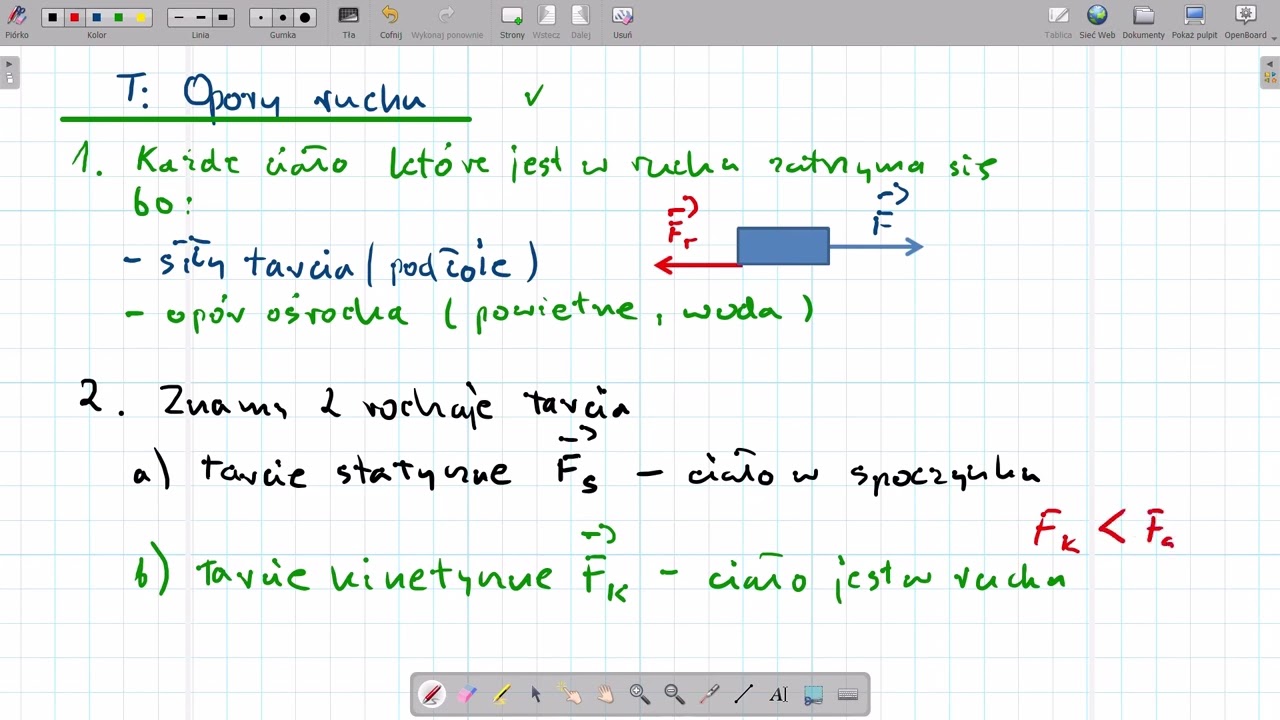 Piórko Kolor Linia Gumka Tła Cofnij Wykonaj ponownie Strony Wstecz Dalej Usuń Tablica Sieć Web Dokumenty Pokaż pulpit OpenBoard
T: Opory ruchu ✓
1. Każde ciało które jest w ruchu zatrzyma się
bo:
F⃗r F⃗
- siły tarcia (podłoże)
- opór ośrodka (powietrze, woda)
2. Znamy 2 rodzaje tarcia
a) tarcie statyczne F⃗s - ciało w spoczynku
Fk < Fs
b) tarcie kinetyczne F⃗k - ciało jest w ruchu
AI